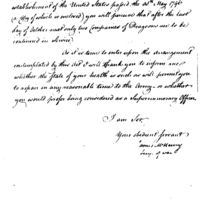 establishment of the United States passed the 30th May 1796
(a Copy of which is enclosed) you will perceive that after the last
day of October next only two Companies of Dragoons are to be
continued in Service.
As it is time to enter upon the arrangement
contemplated by this Act I will thank you to inform me
whether the State of your health is such as will permit you
to repair in any reasonable time to the Army, or whether
you would prefer being considered as a Supernumerary Officer.
I am Sir,
Your obedient servant
James McHenry
Secy. of War